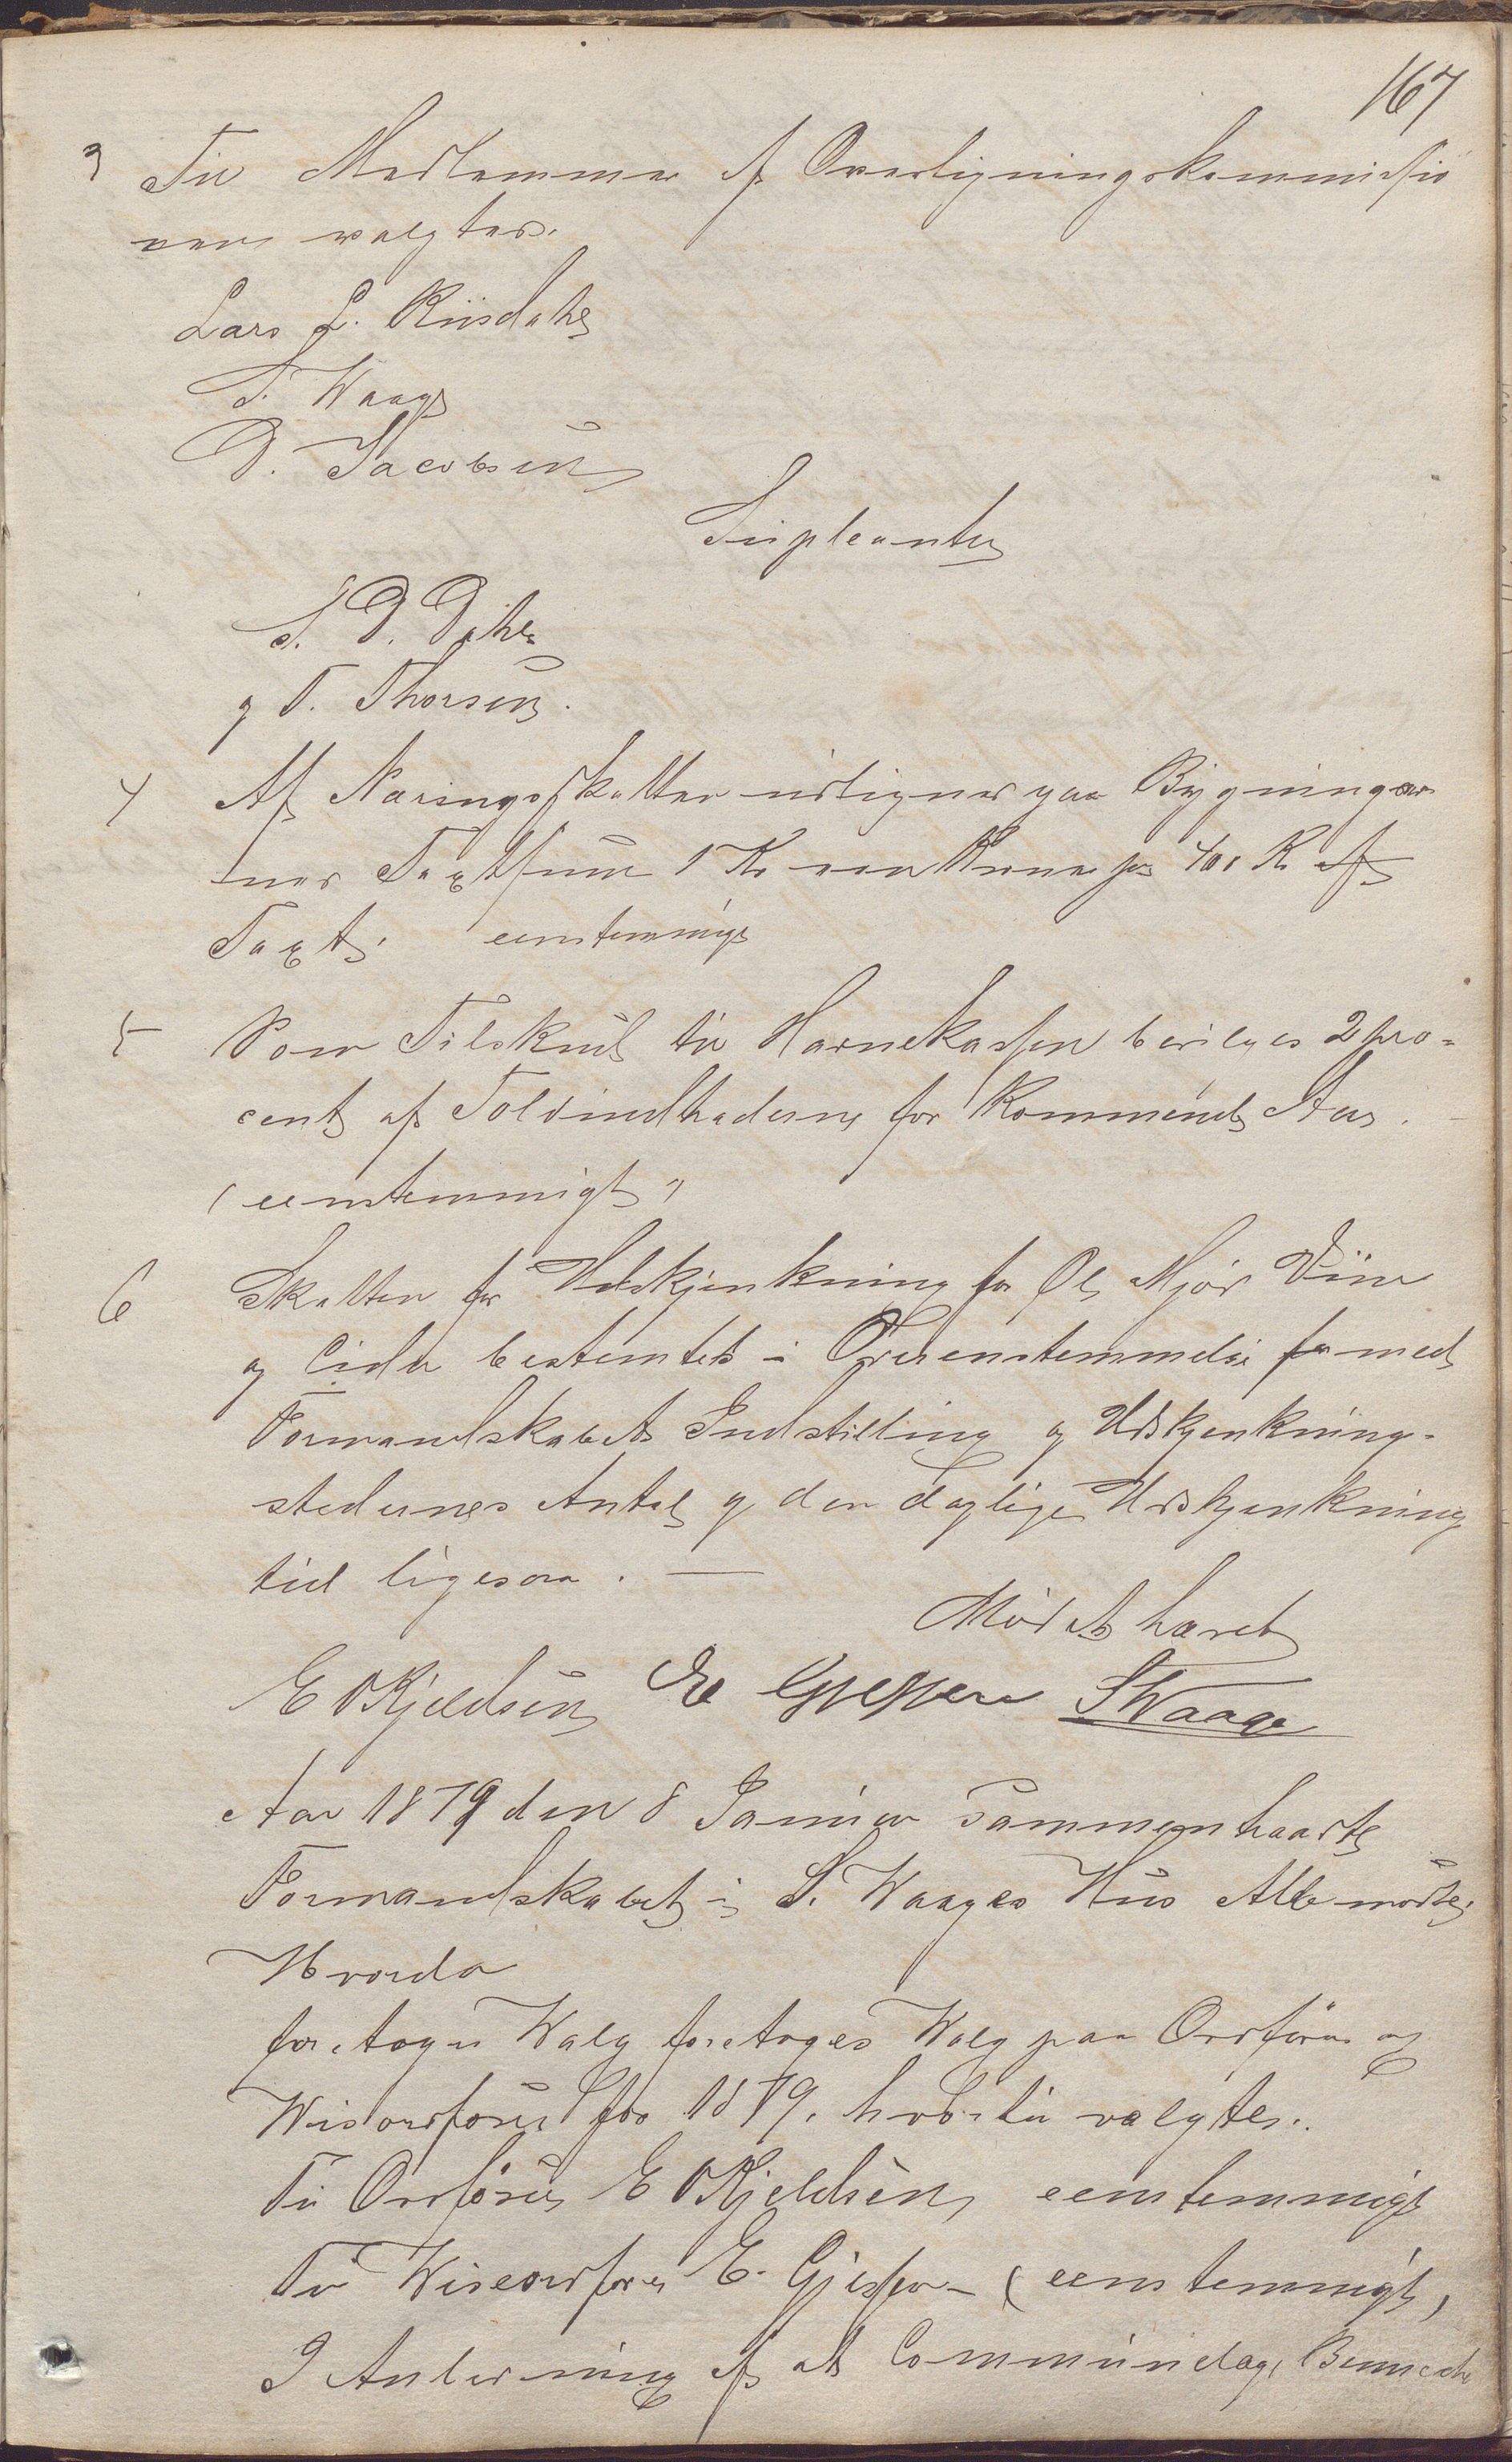 167
3 Til Medlemmer af Overligningskommissio
nen valgtes.
Lars L. Riisdahl
S. Waage
D. Jacobsen
Supleanter
S. D. Dahle
og T. Thorsen.
4 Af Næringsskatten udlignes paa Bygninger
nes Taxtsum 1 Kr een Krone pr 400 Kr af
Taxt. eenstemmigt
5 Som Tilskud til Havnekassen bevilges 2 pro=
cent af Toldindtæderne for Kommende Aar.
(eenstemmigt)
6 Skatten for Udskjenkning for Øl Mjød Viin
og Cider bestemtes i Overenstemmelse for med
Formandskabets Indstilling og Udskjenknings-
stedernes Antal og den daglige Udskjenkning
tid ligesaa. —
Mødet hævet
E Kjeldsen E Gjessen S Waage
Aar 1879 den 8 Januar Sammenhaardt
Formandskabet i S. Waages Hus Alle mødte.
Hvorda
foretoges Walg foretoges Walg paa Ordfører og
Wiseordfører for 1879, hvortil valgtes.
Til Ordfører E Kjeldsen eenstemmigt
Til Wiseordfører E. Gjessen (eenstemmigt)
I Anledning af at Communelæge